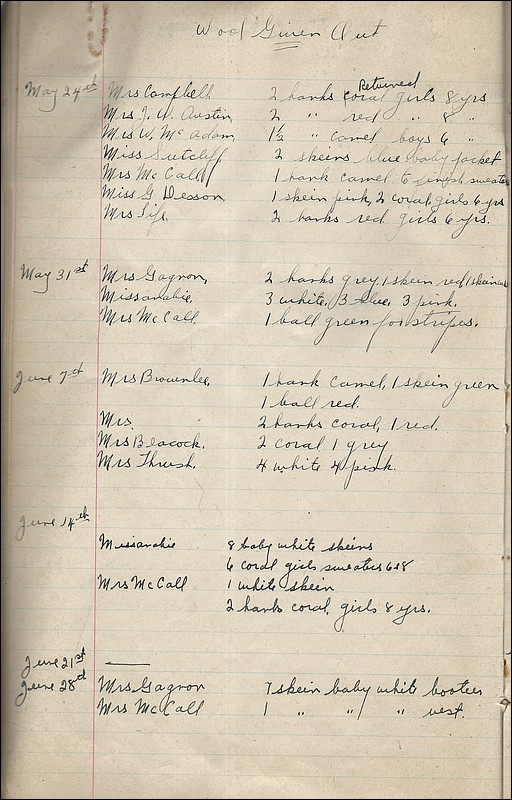 Wool Given Out
Returned
May 24st Mrs Campbell 2 hanks coral girls 8 yrs
Mrs J. W. Austin 2 " red " 8 "
Mrs W. McAdam 1½ " camel boys 6 "
Miss Sutcliff 2 skeins blue baby jacket
Mrs McCall 1 hank camel to finish sweater
Miss G Desson 1 skein pink, 2 coral girls 6 yrs
Mrs 2 hanks red girls 6 yrs.
May 31st Mrs Gagnon, 2 hanks grey, 1 skein red, 1 skein
Missanabie. 3 white, 3 blue, 3 pink.
Mrs McCall. 1 ball green for stripes.
June 7st Mrs Brownlee. 1 hank camel, 1 skein green
1 ball red.
Mrs. 2 hanks coral, 1 red.
Mrs Beacock. 2 coral 1 grey
Mrs Thrush. 4 white 4 pink.
June 14th
Missanabie 8 baby white skeins
6 coral girls sweaters 6+8
Mrs McCall 1 white skein
2 hanks coral, girls 8 yrs.
June 21st ———
June 28d Mrs Gagnon 7 skein baby white bootees
Mrs McCall 1 " " " vest.